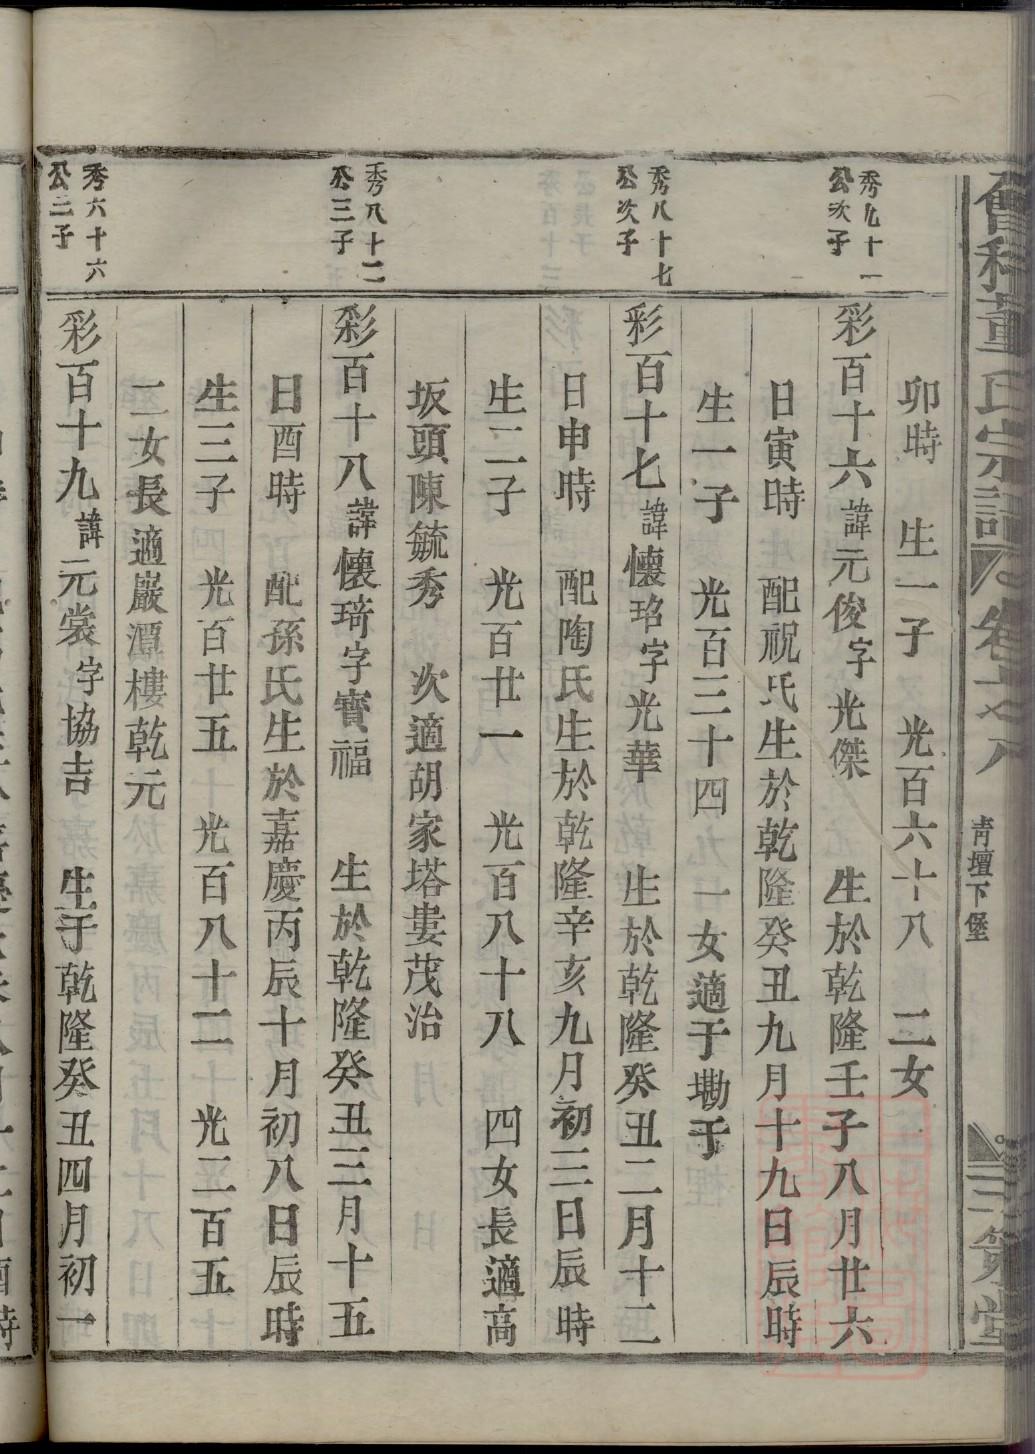 會稽董氏宗譜
青壇下堡
三策堂
卯時 生一子 光百六十八 二女
秀九十一
公次子
彩百十六諱元俊字光傑 生於乾隆壬子八月廿六
日寅時 配祝氏生於乾隆癸丑九月十九日辰時
生一子 光百三十四 一女適于墈于
秀八十七
公次子
彩百十七諱懷珞字光華 生於乾隆癸丑二月十二
日申時 配陶氏生於乾隆辛亥九月初三日辰時
生二子 光百廿一 光百八十八 四女長適高
坂頭陳毓秀 次適胡家塔婁茂治
秀八十二
公三子
彩百十八諱懷琦字寶福 生於乾隆癸丑三月十五
日酉時 配孫氏生於嘉慶丙辰十月初八日辰時
生三子 光百廿五 光百八十二 光二百五
二女長適巖潭樓乾元
秀六十六
公二子
彩百十九諱元裳字協吉 生于乾隆癸丑四月初一